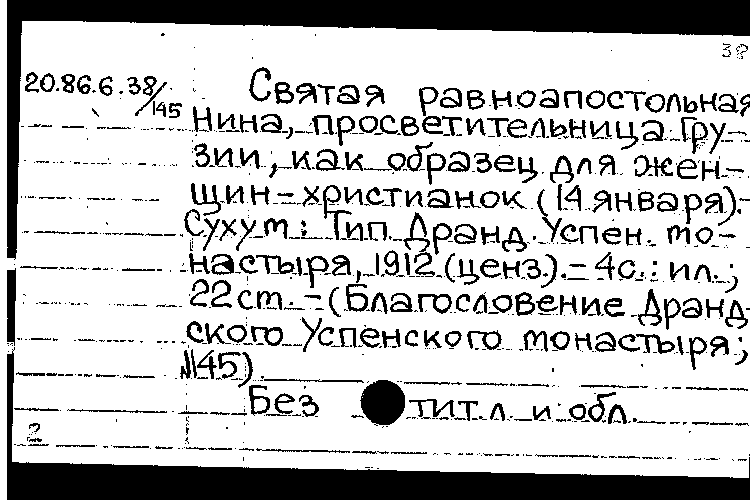 3?
20.86.6.38/145
Святая равноапостольная
Нина, просветительница Гру-
зии, как образец для жен-
щин-христианок (14 января).-
Сухум: Тип. Дранд. Успен. мо-
настыря, 1912 (ценз).-4с.: ил.;
22см.-(Благословение Дранд-
ского Успенского монастыря;
№145)
Без тит.л. и обл.
2